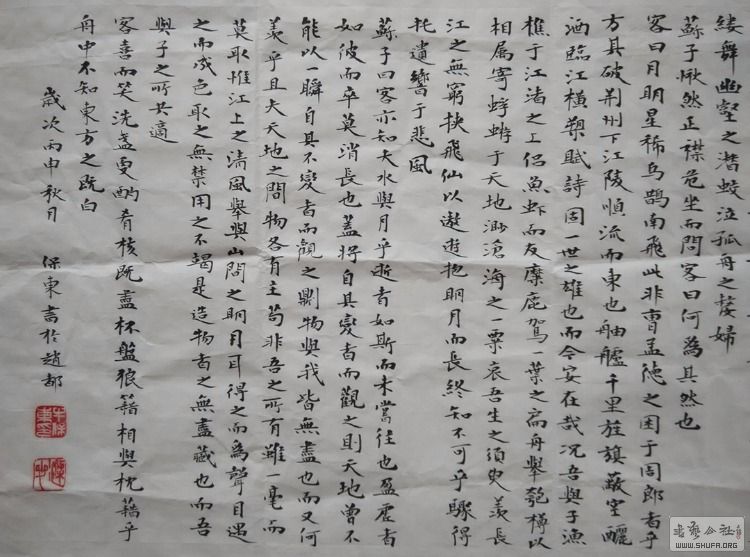 缕舞幽壑之潜蛟泣孤舟之嫠婦
蘇子愀然正襟危坐而問客曰何為其然也
客曰月明星稀烏鵲南飛此非曹孟德之困于周郎者乎
方其破荆州下江陵順流而東也舳艫千里旌旗蔽空釃
酒臨江橫槊賦詩固一世之雄也而今安在哉况吾與子漁
樵于江渚之上侣魚虾而友麋鹿駕一葉之扁舟舉匏樽以
相属寄蜉蝣于天地渺滄海之一粟哀吾生之須臾羡長
江之無窮挟飛仙以遨遊抱明月而長終知不可乎驟得
托遺響于悲風
蘇子曰客亦知夫水與月乎逝者如斯而未嘗往也盈虛者
如彼而卒莫消長也蓋将自其變者而觀之則天地曾不
能以一瞬自其不變者而觀之則物與我皆無盡也而又何
羡乎且夫天地之間物各有主苟非吾之所有雖一毫而
莫取惟江上之清風舉與山間之明月耳得之而為聲目遇
之而成色取之無禁用之不竭是造物者之無盡藏也而吾
與子之所共適
客喜而笑洗盞更酌肴核既盡杯盤狼籍相與枕藉乎
舟中不知東方之既白
歲次丙申秋月 保東書於趙都
牛保東印
書藝公社
WWW.SHUFA.ORG